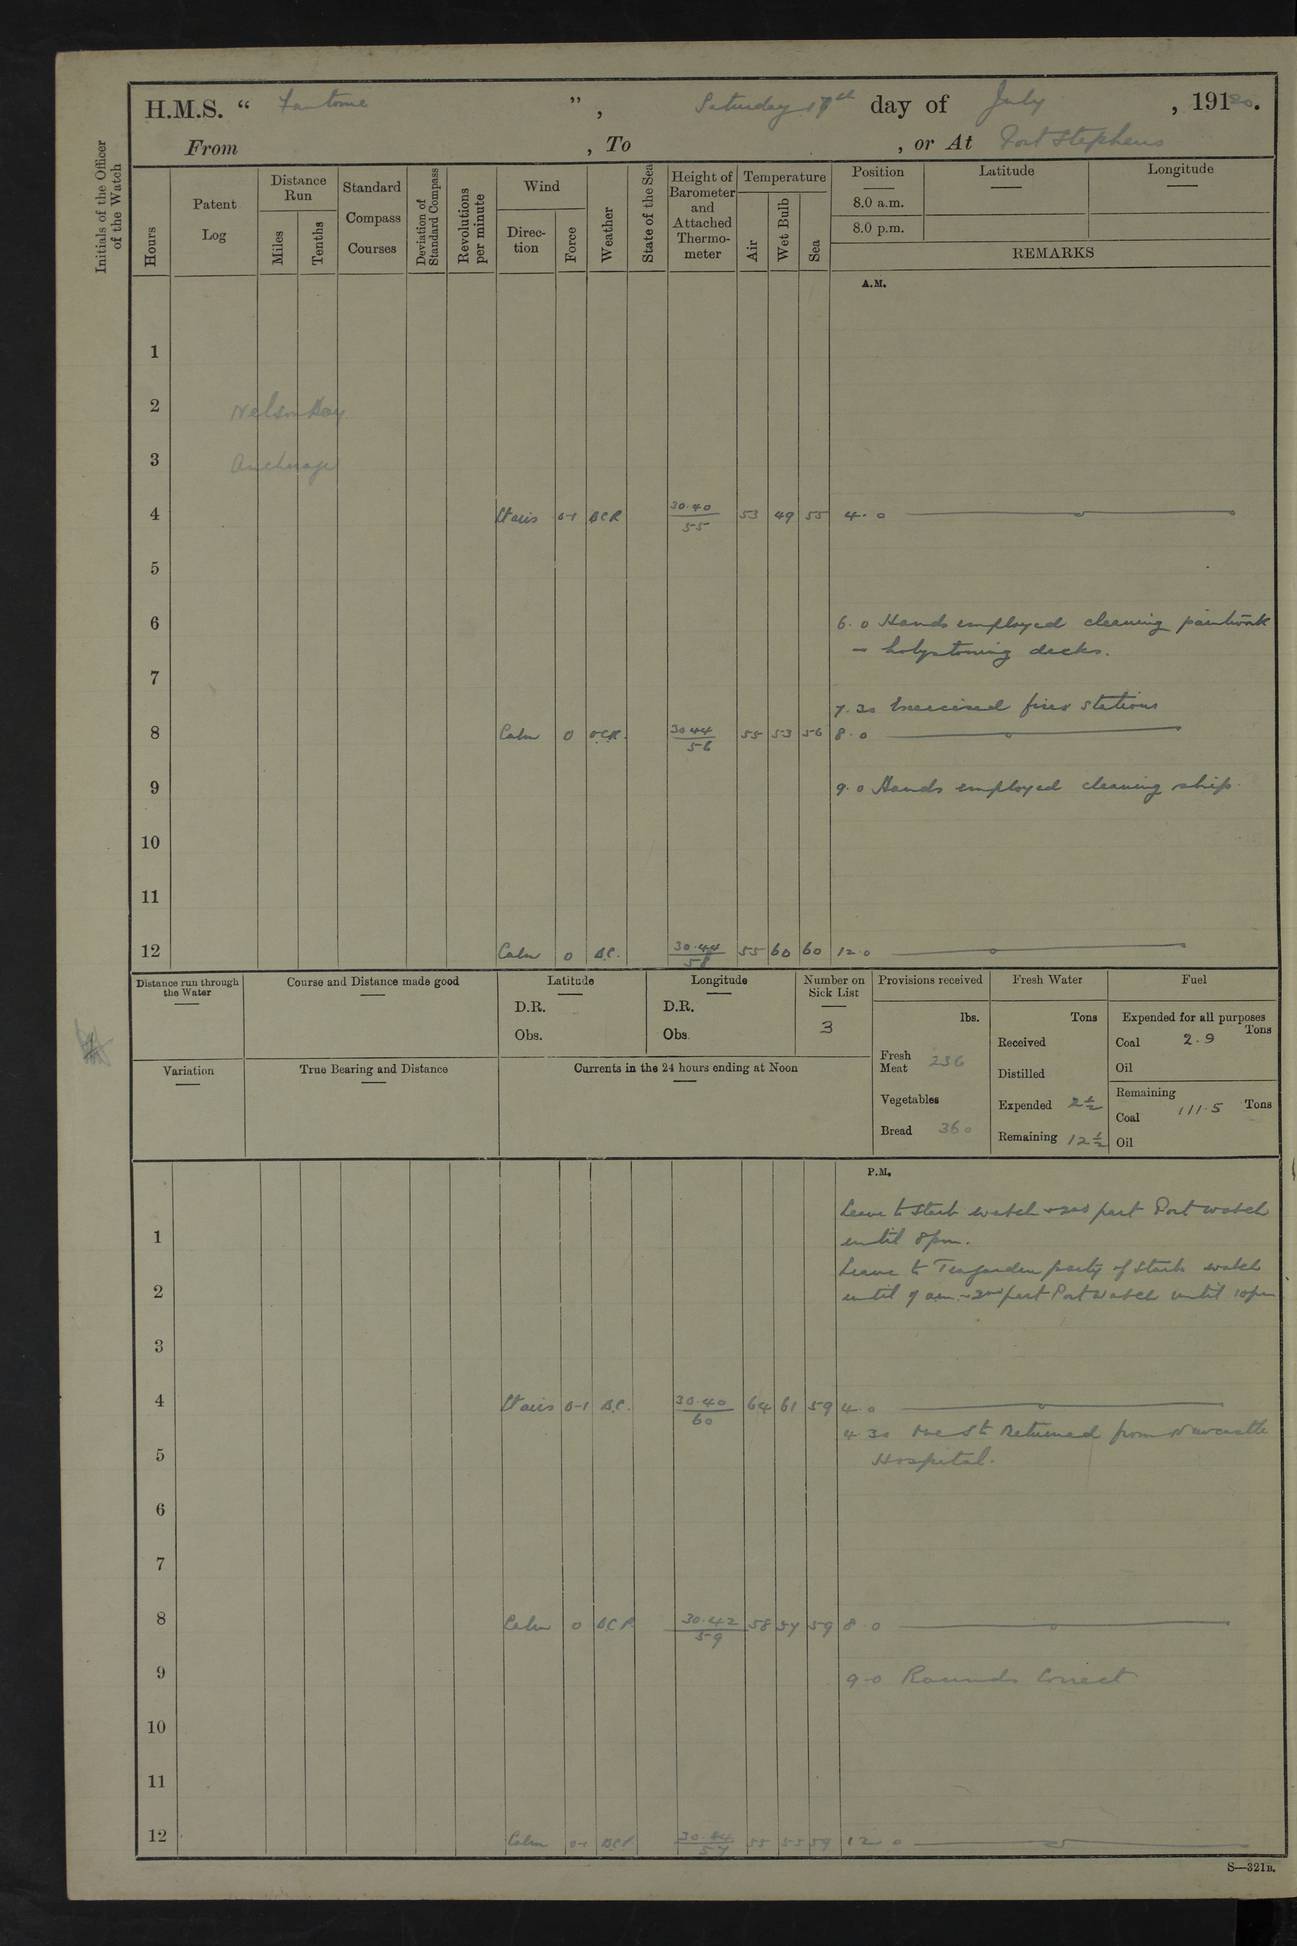 H.M.S. “ Fantome ” , Saturday 17th day of July , 19120.
From , To , or At Port Stephens
Initials of the Officer of the Watch
Hours
Patent Log
Distance Run
Miles
Tenths
Standard Compass Courses
Deviation of Standard Compass
Revolutions per minute
Wind
Direction
Force
Weather
State of the Sea
Height of Barometer and Attached Thermometer
Temperature
Air
Wet Bulb
Sea
Position
Latitude
Longitude
8.0 a.m.
8.0 p.m.
REMARKS
A.M.
1
2 Nelson Bay
3 Anchorage
4 Lt airs 0-1 BCR 30.40 / 55 53 49 55 4.0
5
6 6.0 Hands employed cleaning paintwork
- holystoning decks.
7
7.30 Exercised fire stations
8 Calm 0 OCR. 30.44 / 56 55 53 56 8.0
9 9.0 Hands employed cleaning ship.
10
11
12 Calm 0 B.C. 30.44 / 58 55 60 60 12.0
Distance run through the Water
Course and Distance made good
Latitude
D.R.
Obs.
Longitude
D.R.
Obs.
Number on Sick List
3
Provisions received
lbs.
Fresh Meat 236
Vegetables
Bread 360
Fresh Water
Tons
Received
Distilled
Expended 2½
Remaining 12½
Fuel
Expended for all purposes
Tons
Coal 2.9
Oil
Remaining
Coal 111.5 Tons
Oil
Variation
True Bearing and Distance
Currents in the 24 hours ending at Noon
P.M.
Leave to Starb watch & 2nd part Port watch
1 until 8pm.
Leave to Teagarden party of Starb watch
2 until 7 am. & 2nd part Port watch until 10pm
3
4 Lt airs 0-1 B.C. 30.40 / 60 64 61 59 4.0
4.30 One St Returned from Newcastle
5 Hospital.
6
7
8 Calm 0 BCR 30.42 / 59 58 57 59 8.0
9 9.0 Rounds Correct
10
11
12 Calm 0-1 BCR 30.44 / 57 55 55 59 12.0
S—321B.